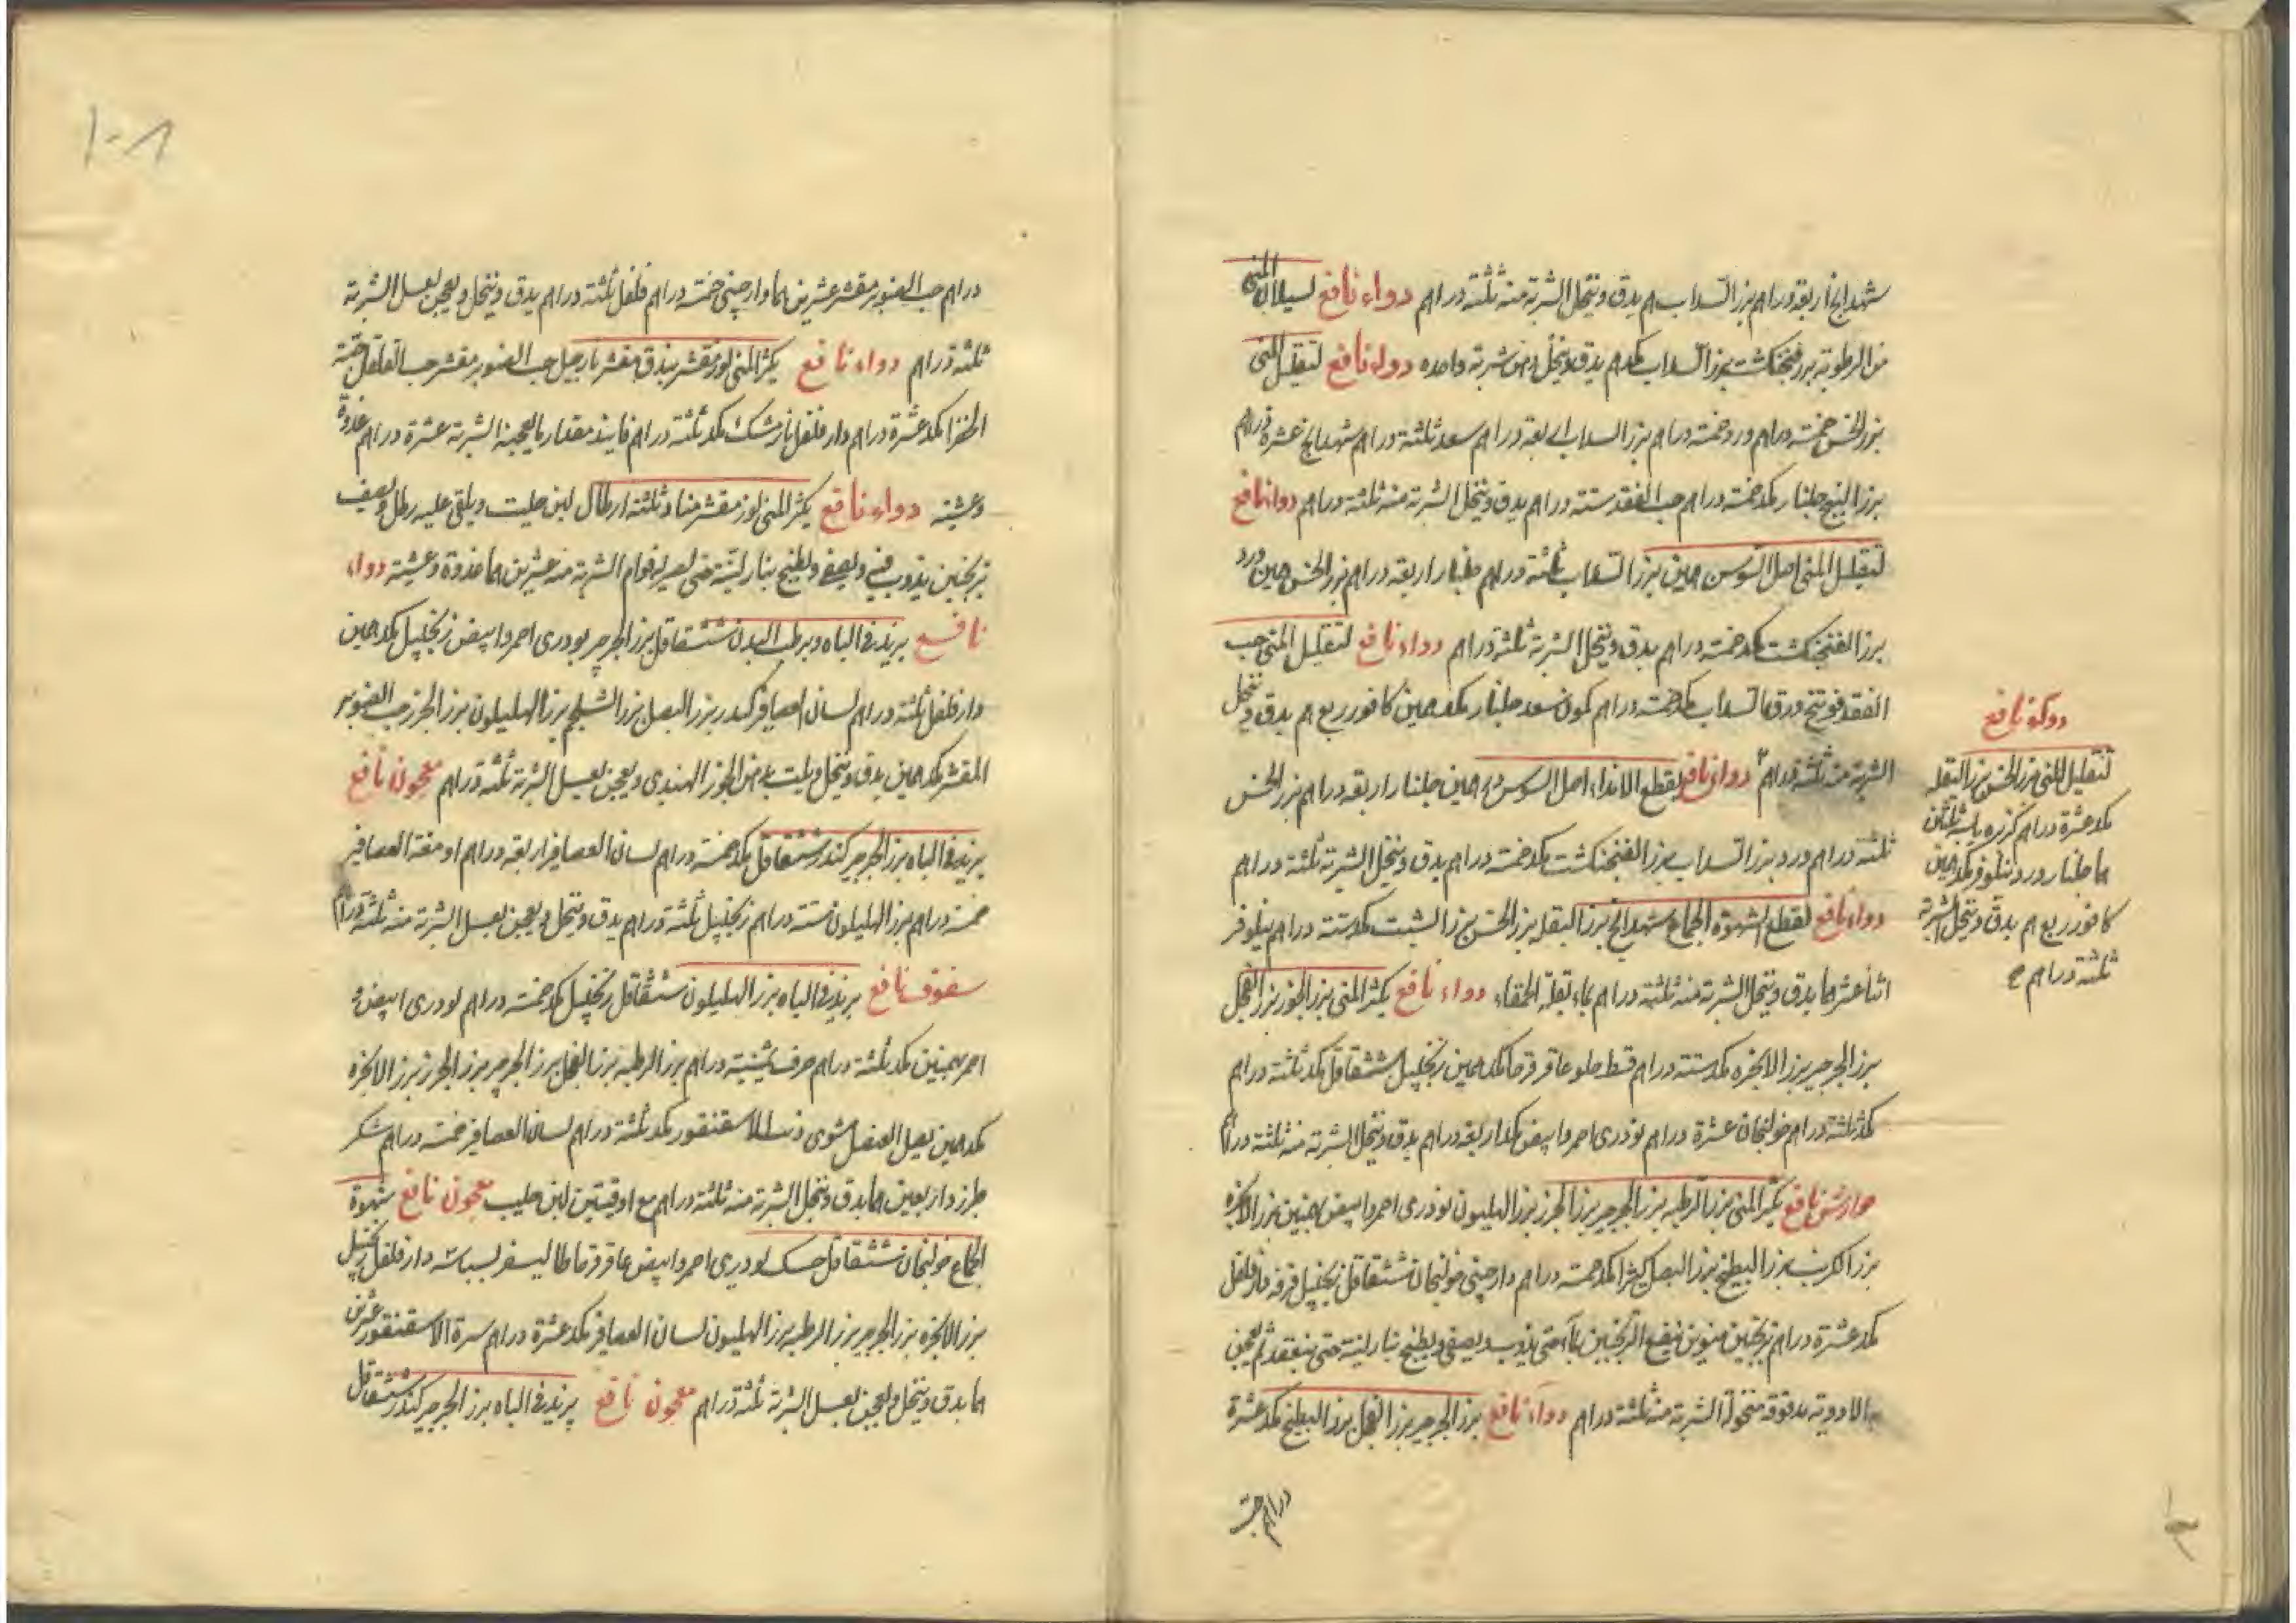 شهدانج اربعة دراهم بزر السداب م يدق وينخل الشربة منه ثلثة دراهم دواء نافع لسيلان المنى
من الرطوبة بزر فنجنكشت بزر السداب مكد م يدق وينخل وهى شربة واحده دواء نافع لتقليل المنى
بزر الخس خمسة دراهم ورد خمسة دراهم بزر السداب اربعة دراهم سعد ثلثة دراهم شهدانج عشرة دراهم
بزر البنج جلنار مكد خمسة دراهم حب الفقد ستة دراهم يدق وينخل الشربة منه ثلثة دراهم دواء نافع
لتقليل المنى اصل السوسن همين بزر السداب ثلثة دراهم جلنار اربعة دراهم بزر الخس همين ورد
بزر الفنجنكشت مكد خمسة دراهم يدق وينخل الشربة ثلثة دراهم دواء نافع لتقليل المنى حب
الفقد فوتنج ورق السداب مكد خمسة دراهم كمون سعد جلنار مكد همين كافور ربع م يدق وينخل
الشربة منه ثلثة دراهم دواء نافع لقطع الامذاء اصل السوس همين جلنار اربعة دراهم بزر الخس
ثلثة دراهم ورد بزر السداب بزر الفنجنكشت مكد خمسة دراهم يدق وينخل الشربة ثلثة دراهم
دواء نافع لقطع الشهوة الجماع شهدانج بزر البقلة بزر الخس بزر الشبت مكد ستة دراهم نيلوفر
اثنا عشر هما يدق وينخل الشربة منه ثلثة دراهم بماء بقلة الحمقاء دواء نافع يكثر المنى بزر الجزر بزر الفجل
بزر الجرجير بزر الانجره مكد ستة دراهم قسط حلو عاقرقرحا مكد همين زنجبيل ششقاقل مكد ثلثة دراهم
مكد ثلثة دراهم خولنجان عشرة دراهم تودرى احمر وابيض مكد اربعة دراهم يدق وينخل الشربة منه ثلثة دراهم
جوارشن نافع يكثر المنى بزر الرطبه بزر الجرجير بزر الجزر بزر الهليون تودرى احمر وابيض بهمنين بزر الانجره
بزر الكرنب بزر البطيخ بزر البصل كثيرا مكد خمسة دراهم دارچينى خولنجان ششقاقل زنجبيل قرفه دارفلفل
مكد عشرة دراهم ترنجبين منوين ينقع الترنجبين بماء حتى يذوب ويصفى ويطبخ بنار لينة حتى ينعقد ثم يعجن
به الادوية مدقوقة منخولة الشربة منه ثلثة دراهم دواء نافع بزر الجرجير بزر الفجل بزر البطيخ مكد عشرة
دراهم
دواء نافع
لتقليل المنى بزر الخس بزر البقله
مكد عشرة دراهم كزبره يابسة ثلثين
هما جلنار ورد نيلوفر مكد همين
كافور ربع م يدق وينخل الشربة
ثلثة دراهم
١٠١
دراهم حب الصنوبر مقشر عشرين هما دارچينى خمسة دراهم فلفل ثلثة دراهم يدق وينخل ويعجن بعسل الشربة
ثلثة دراهم دواء نافع يكثر المنى لوز مقشر بندق مقشر نارجيل حب الصنوبر مقشر حب القلقل حبة
الخضرا مكد عشرة دراهم دارفلفل نارمشك مكد ثلثة دراهم فانيد مقدار ما يعجنه الشربة عشرة دراهم غدوة
وعشية دواء نافع يكثر المنى لوز مقشر منا وثلثة ارطال لبن حليب ويلقى عليه رطل ونصف
ترنجبين يذوب فيه ويصفى ويطبخ بنار لينة حتى يصير له قوام الشربة منه عشرين هما غدوة وعشية دواء
نافع يزيد فى الباه ويرطب البدن ششقاقل بزر الجرجير تودرى احمر وابيض زنجبيل مكد همين
دارفلفل ثلثة دراهم لسان العصافير كندر بزر البصل بزر الشلجم بزر الهليلون بزر الجزر حب الصنوبر
المقشر مكد همين يدق وينخل ويلت بدهن الجوز الهندى ويعجن بعسل الشربة ثلثة دراهم معجون نافع
يزيد فى الباه بزر الجرجير كندر ششقاقل مكد خمسة دراهم لسان العصافير اربعة دراهم ادمغة العصافير
خمسة دراهم بزر الهليلون ستة دراهم زنجبيل ثلثة دراهم يدق وينخل ويعجن بعسل الشربة منه ثلثة دراهم
سفوف نافع يزيد فى الباه بزر الهليلون ششقاقل زنجبيل مكد خمسة دراهم تودرى ابيض و
احمر بهمنين مكد ثلثة دراهم حرف ثمنية دراهم بزر الرطبه بزر الفجل بزر الجرجير بزر الجزر بزر الانجره
مكد همين بصل العنصل مشوى ذنب الاسقنقور مكد ثلثة دراهم لسان العصافير خمسة دراهم سكر
طبرزد اربعين هما يدق وينخل الشربة منه ثلثة دراهم مع اوقيتين لبن حليب معجون نافع شهوة
الجماع خولنجان ششقاقل حسك تودرى احمر وابيض عاقرقرحا طاليسفر بسباسه دارفلفل زنجبيل
بزر الانجره بزر الجرجير بزر الرطبه بزر الهليون لسان العصافير مكد عشرة دراهم سرة الاسقنقور عشرين
هما يدق وينخل ويعجن بعسل الشربة ثلثة دراهم معجون نافع يزيد فى الباه بزر الجرجير كندر ششقاقل